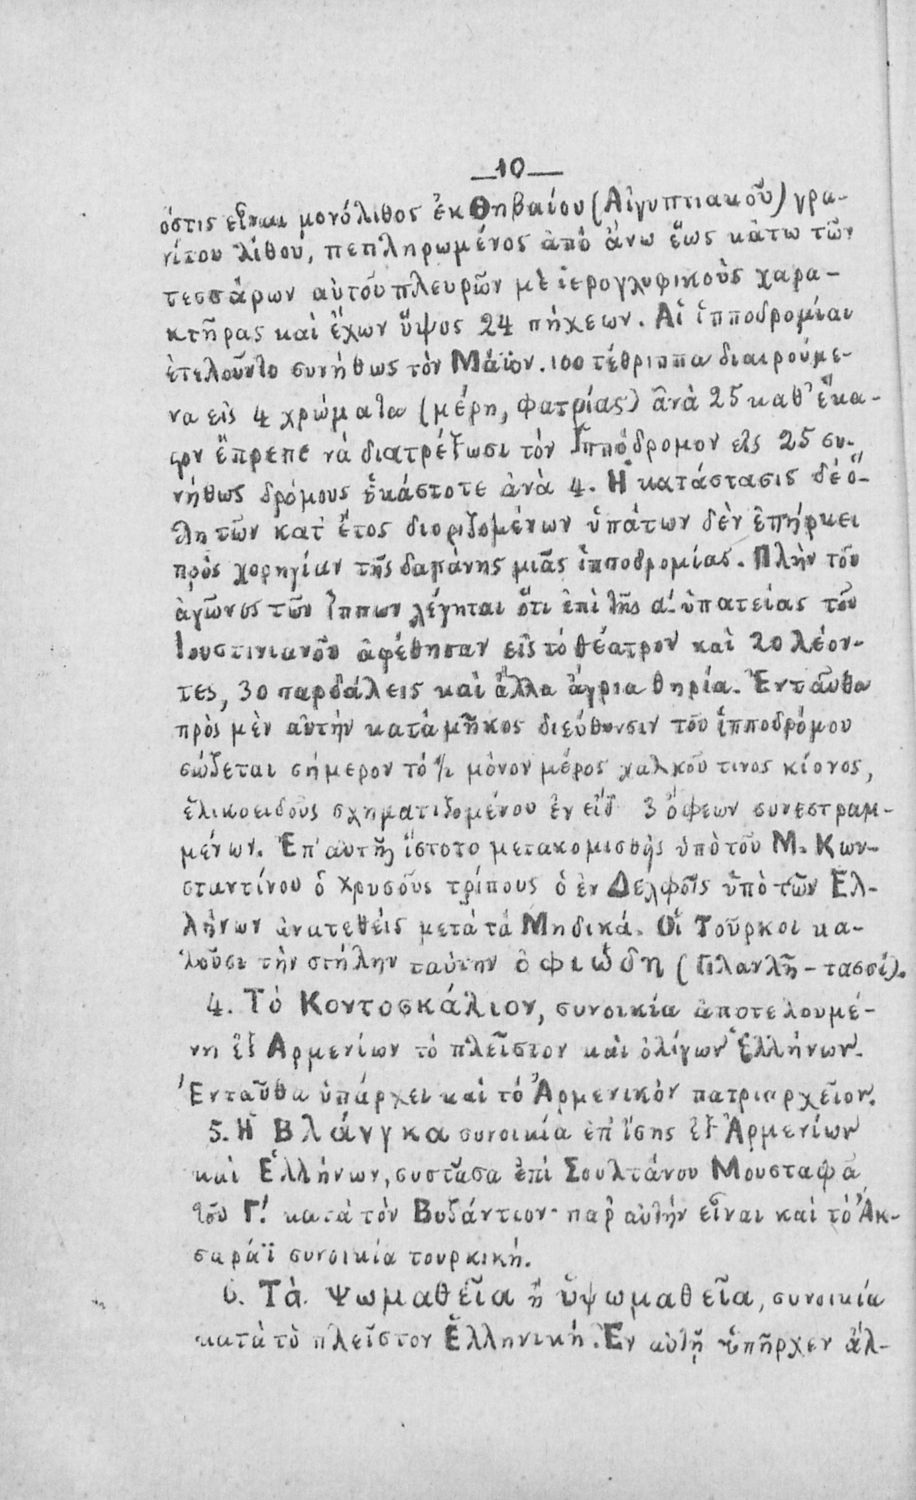 —10—
ὅστις εἶναι μονόλιθος ἐκ Θηβαίου (Αἰγυπτιακοῦ) γρα-
νίτου λίθου, πεπληρωμένος ἀπὸ ἄνω ἕως κάτω τῶν
τεσσάρων αὐτοῦ πλευρῶν μὲ ἱερογλυφικοὺς χαρα-
κτῆρας καὶ ἔχων ὕψος 24 πήχεων. Αἱ ἱπποδρομίαι
ἐτελοῦντο συνήθως τὸν Μάϊον. 100 τέθριππα διαιρούμε-
να εἰς 4 χρώματα (μέρη, φατρίας) ἀνὰ 25 καθ' ἕκα-
στον ἔπρεπε νὰ διατρέξωσι τὸν Ἱππόδρομον εἰς 25 συ-
νήθως δρόμους ἑκάστοτε ἀνὰ 4. Ἡ κατάστασις δὲ ὅ-
λη τῶν κατ' ἔτος διοριζομένων ὑπάτων δὲν ἐπήρκει
πρὸς χορηγίαν τῆς δαπάνης μιᾶς ἱπποδρομίας. Πλὴν τοῦ
ἀγῶνος τῶν ἵππων λέγηται ὅτι ἐπὶ τῆς α'. ὑπατείας τοῦ
Ἰουστινιανοῦ ἀφέθησαν εἰς τὸ θέατρον καὶ 20 λέον-
τες, 30 παρδάλεις καὶ ἄλλα ἄγρια θηρία. Ἐνταῦθα
πρὸς μὲν αὐτὴν κατὰ μῆκος διεύθυνσιν τοῦ ἱπποδρόμου
σώζεται σήμερον τὸ ½ μόνον μέρος χαλκοῦ τινος κίονος,
ἑλικοειδοῦς σχηματιζομένου ἐν εἴδ 3 ὄφεων συνεστραμ-
μένων. Ἐπ' αὐτῆς ἵστατο μετακομισθεὶς ὑπὸ τοῦ Μ. Κων-
σταντίνου ὁ χρυσοῦς τρίπους ὁ ἐν Δελφοῖς ὑπὸ τῶν Ἑλ-
λήνων ἀνατεθεὶς μετὰ τὰ Μηδικά. Οἱ Τοῦρκοι κα-
λοῦσι τὴν στήλην ταύτην ὀφιώδη (Γιλανλῆ-τασσί).
4. Τὸ Κοντοσκάλιον, συνοικία ἀποτελουμέ-
νη ἐξ Ἀρμενίων τὸ πλεῖστον καὶ ὀλίγων Ἑλλήνων.
Ἐνταῦθα ὑπάρχει καὶ τὸ Ἀρμενικὸν πατριαρχεῖον.
5. Ἡ Βλάνγκα συνοικία ἐπ' ἴσης ἐξ Ἀρμενίων
καὶ Ἑλλήνων, συστᾶσα ἐπὶ Σουλτάνου Μουσταφᾶ
τοῦ Γ'. κατὰ τὸν Βυζάντιον· παρ' αὐτὴν εἶναι καὶ τὸ Ἀκ-
σαράϊ συνοικία τουρκική.
6. Τὰ Ψωμαθεῖα ἢ ὑψωμαθεῖα, συνοικία
κατὰ τὸ πλεῖστον Ἑλληνική. Ἐν αὐτῇ ὑπῆρχεν ἄλ-